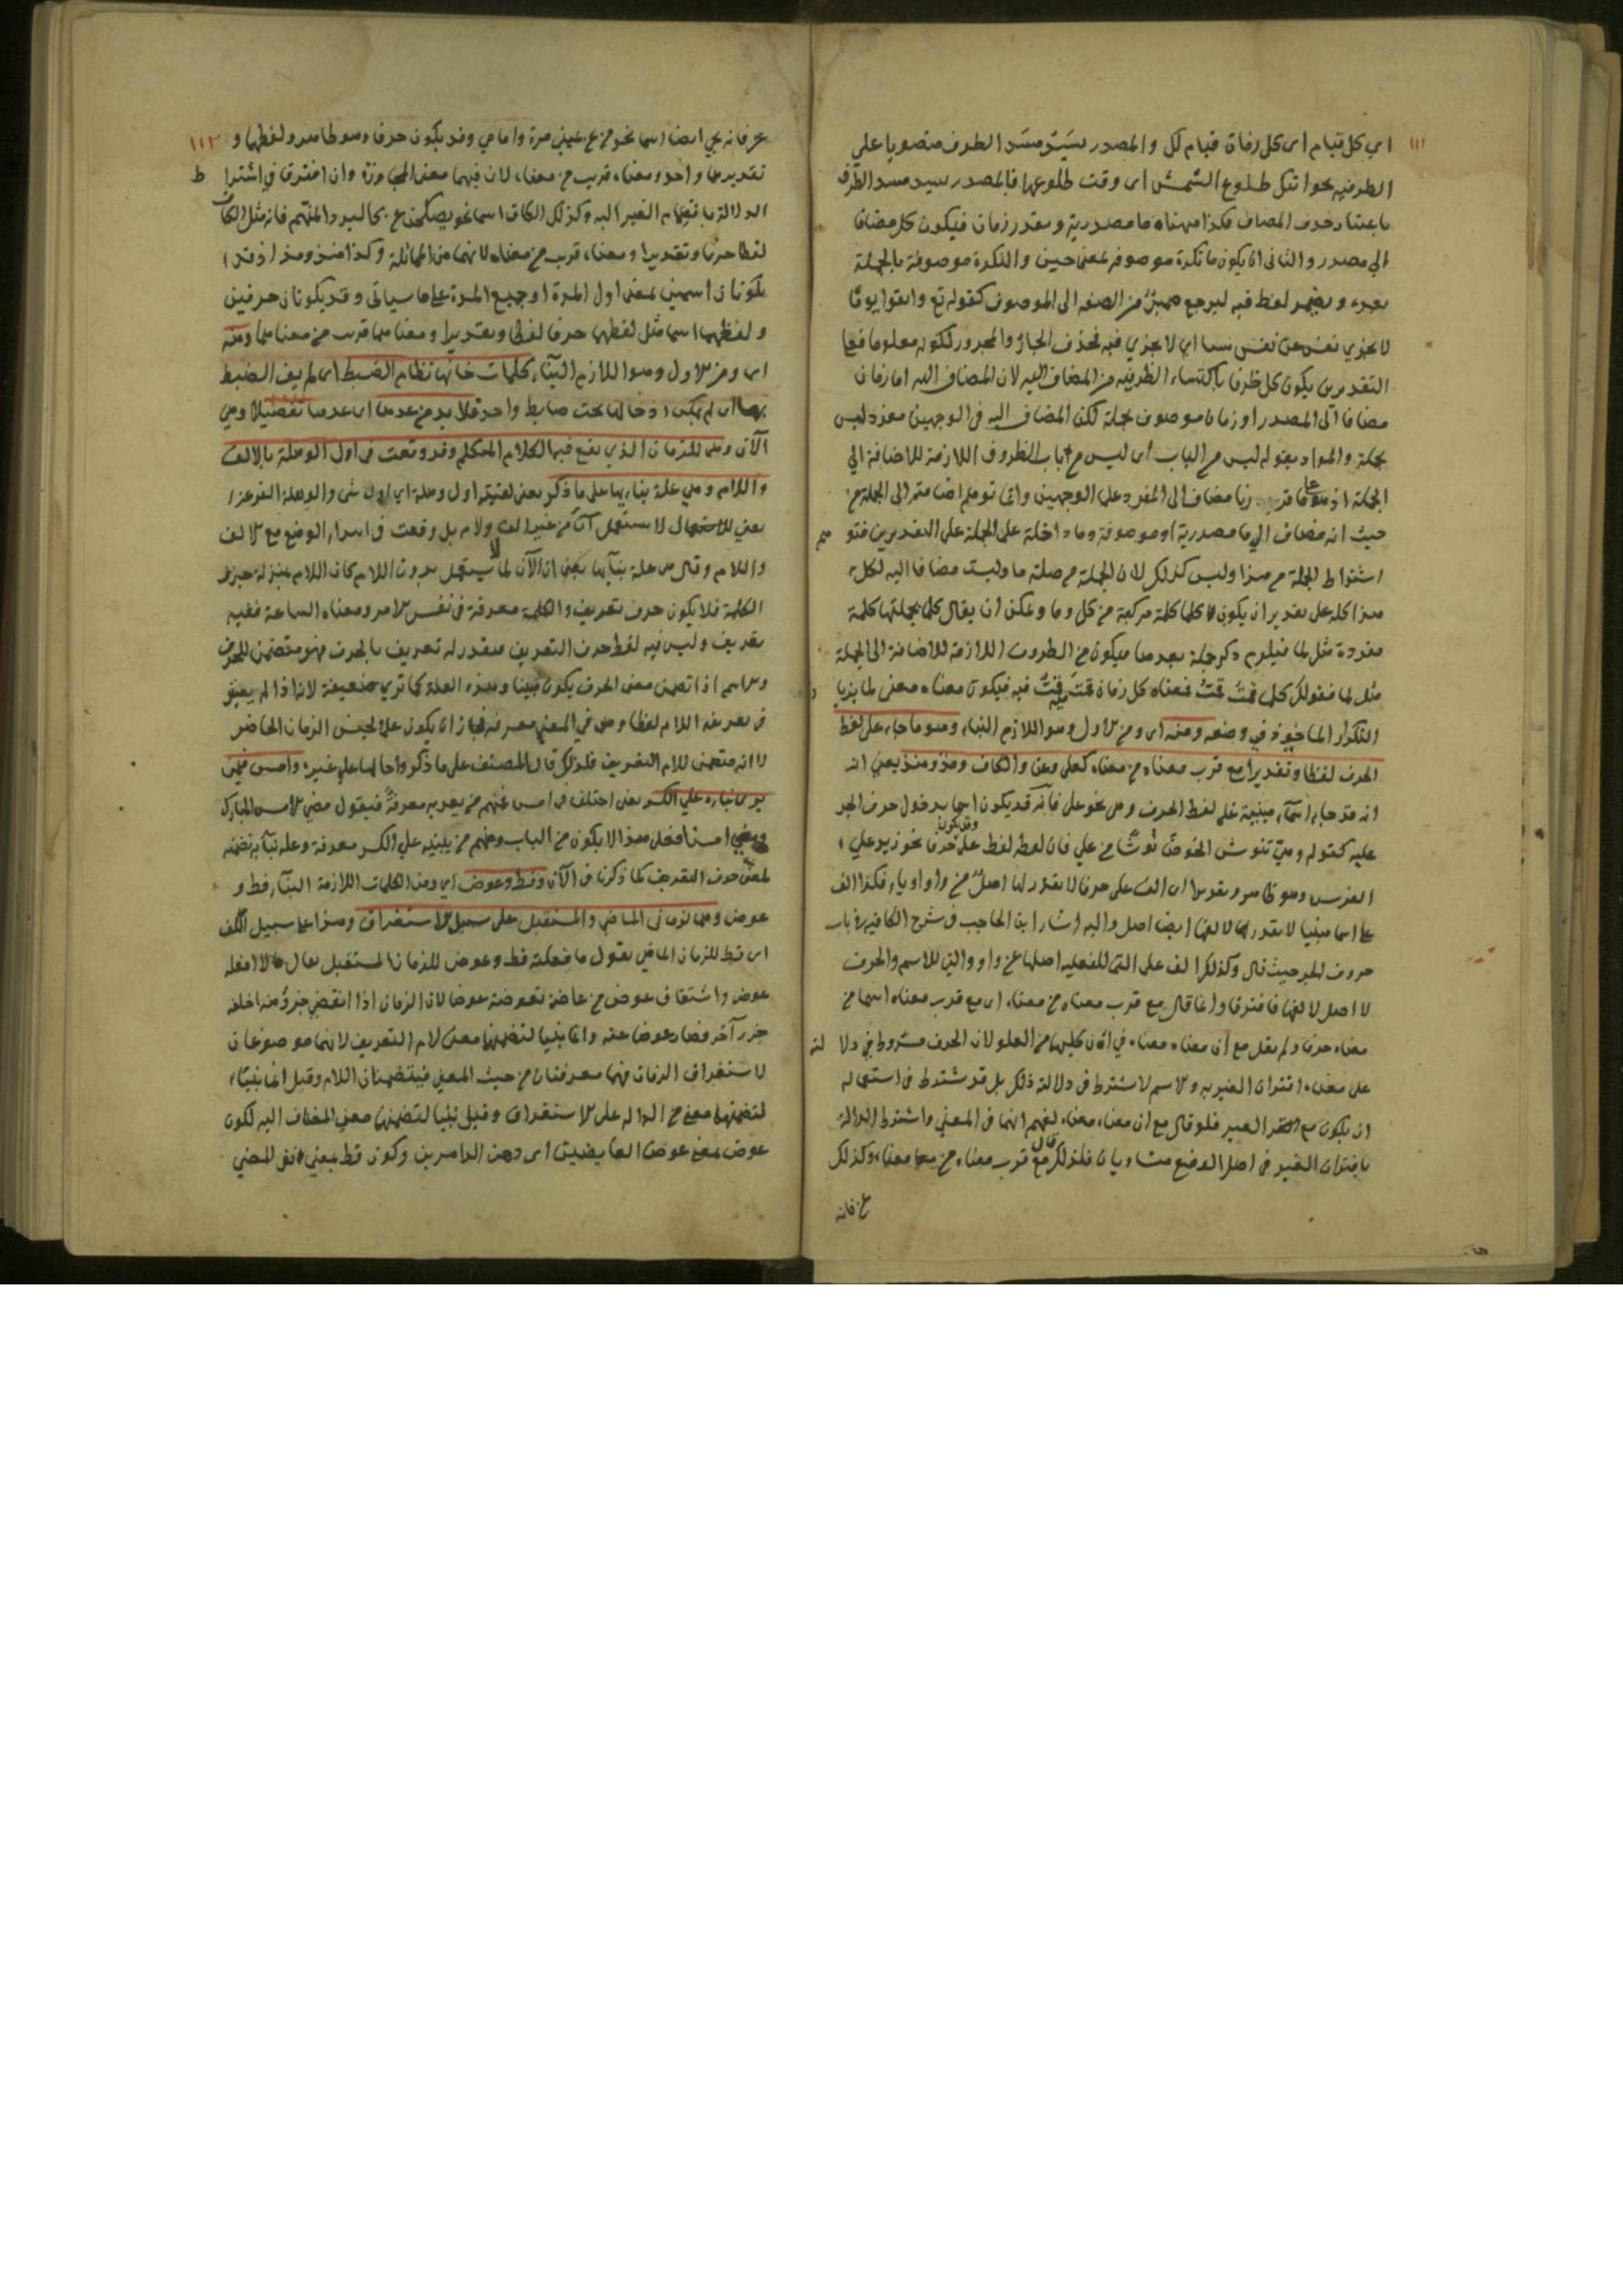 ١١١
اي كل قيام اى كل زمان قيام لك والمصدر يسد مسد الظرف منصوبا على
الظرفية نحو اتيك طلوع الشمس اى وقت طلوعها فالمصدر يسد مسد الظرف
باعتبار حذف المضاف فكذا ههنا ما مصدرية ويقدر زمان فيكون كل مضافا
الى مصدر والثانى ان يكون ما نكرة موصوفة بمعنى حين والنكرة موصوفة بالجملة
بعده ويضمر لفظ فيه ليرجع ضمير من الصفة الى الموصوف كقوله تع واتقوا يوما
لا تجزي نفس عن نفس شيئا اي لا تجزي فيه فحذف الجار والمجرور لكونه معلوما فعلى
التقديرين يكون كل ظرفا باكتساء الظرفية من المضاف اليه لان المضاف اليه اما زمان
مضاف الى المصدر او زمان موصوف بجملة لكن المضاف اليه في الوجهين مفرد ليس
بجملة والمراد بقوله ليس من الباب اى ليس من باب الظروف اللازمة للاضافة الي
الجملة اذ مضاف الى المفرد على الوجهين وانما توهم اضافته الى الجملة من
حيث انه مضاف الي ما مصدرية او موصوفة وما داخلة على الجملة على التقديرين
اشتراط الجملة من هذا وليس كذلك لان الجملة من صلة ما وليست مضافا اليه لكل
هذا كله على تقدير ان يكون كلما كلمة مركبة من كل وما ويمكن ان يقال كلما بجملتها كلمة
مفردة مثل لما فيلزم ذكر جملة بعدها فيكون من الظروف اللازمة للاضافة الى الجملة
مثل لما فقولك كلما قمت قمت فمعناه كل زمان قمت فيه قمت فيه فيكون معناه معنى لما بزيادة
التكرار الماخوذ في وضعه ومنه اى ومن الاول وهو اللازم البناء وهو ما جاء على لفظ
الحرف لفظا وتقديرا مع قرب معناه من معناه كعلى وعن والكاف ومذ ومنذ يعني انه
انه قد جاء اسماء مبنية على لفظ الحرف وهى نحو على فانه قد يكون اسما بدخول حرف الجر
عليه كقوله وهي تنوش الحوض نوشا من علي فان لفظه لفظ على وقد يكون حرفا نحو زيد علي
الفرس وهو ظاهر وتقديرا اى الف على حرفا لا يقدر لها اصل من واو او ياء فكذا الف
على اسما مبنيا لا يقدر لها لا لفها ايضا اصل واليه اشار ابن الحاجب في شرح الكافية في باب
حروف الجر حيث قال وكذلك الف على التى للفعلية اصلها عن واو والتي للاسم والحرف
لا اصل لالفها فافترقا وانما قال مع قرب معناه من معناه اى مع قرب معناه اسما من
معناه حرفا ولم يقل مع ان معناه معناه في ان كليهما من العلو لان الحرف مشروط في دلالته
على معناه اقتران الغير به والاسم لا يشترط في دلالته ذلك بل قد يشترط في استعماله
ان يكون مع الغير فلو قال مع ان معناه معناه لفهم انهما في المعني واشتراط الدلالة
باقتران الغير في اصل الوضع متساويان فلذلك قال مع قرب معناه من معناه وكذلك
عن فانه
١١٢
عن فانه يجي ايضا اسما نحو من عن يميني مرة وامامي وقد يكون حرفا وهو ظاهر ولفظهما و
تقديرهما واحد ومعناه قريب من معناه لان فيهما معنى المجاوزة وان افترقا في اشتراط
الدلالة بانضمام الغير اليه وكذلك الكاف اسما نحو يضحكن عن كالبرد المنهم فانه مثل الكاف
لفظا حرفا وتقديرا ومعناه قريب من معناه لانهما من المماثلة وكذا منذ ومذ اذ قد
يكونان اسمين بمعنى اول المدة او جميع المدة على ما سياتى وقد يكونان حرفين
ولفظهما اسما مثل لفظهما حرفا لفظا وتقديرا ومعناهما قريب من معناهما ومنه
اى ومن الاول وهو اللازم البناء كلمات خانها نظام الضبط اى لم يف الضبط
بها اى لم يمكن ادخالها تحت ضابط واحد فلا بد من عدها اى عدها تفصيلا وهي
الآن وهى للزمان الذي يقع فيها الكلام المتكلم وقد وقعت في اول الوهلة بالالف
واللام وهي علة بنائها على ما ذكر يعنى لقيته اول وهلة اي اول شئ والوهلة الفزعة
يعني لا يستعمل آن من غير الف ولام بل وقعت في ابتداء الوضع مع الالف
واللام وقال علة بنائها يعنى ان الآن لما لا يستعمل بدون اللام كان اللام بمنزلة جزء
الكلمة فلا يكون حرف تعريف والكلمة معرفة في نفس الامر ومعناه الساعة ففيه
تعريف وليس فيه لفظ حرف التعريف فيقدر له تعريف بالحرف فهو متضمن للحرف
والاسم اذا تضمن معنى الحرف يكون مبنيا وهذه العلة كما تري ضعيفة لانه اذا لم يعتبر
في تعريفه اللام لفظا وهى في المعنى معرفة فجاز ان يكون علما لجنس الزمان الحاضر
لا انه متضمن للام التعريف فلذلك قال المصنف على ما ذكروا احالها على غيره وامس فيمن
يرى بناءه على الكسر يعنى اختلف في امس فمنهم من يعربه معرفة فيقول مضى الامس المبارك
امسنا فعلى هذا لا يكون من الباب ومنهم من يبنيه على الكسر معرفة وعلة بنائه تضمنه
لمعنى حرف التعريف كما ذكرنا في الآن وقط وعوض اي ومن الكلمات اللازمة البناء قط و
عوض وهما لزمانى الماضي والمستقبل على سبيل الاستغراق وهذا على سبيل اللف
اى قط للزمان الماضي تقول ما فعلته قط وعوض للزمان المستقبل يقال لا افعله
عوض واشتقاق عوض من عاضه تعوضه عوضا لان الزمان اذا انقضى جزؤ منه اخلفه
جزء آخر فصار عوضا عنه وانما بنيا لتضمنهما معنى لام التعريف لانهما موضوعان
لاستغراق الزمان فهما معرفتان من حيث المعنى فيتضمنان اللام وقيل انما بنيتا
لتضمنهما معنى من الدالة على الاستغراق وقيل بنيا لتضمنهما معنى المضاف اليه لكون
عوض بمعنى عوض العائضين اى دهر الداهرين وكون قط بمعنى المضي